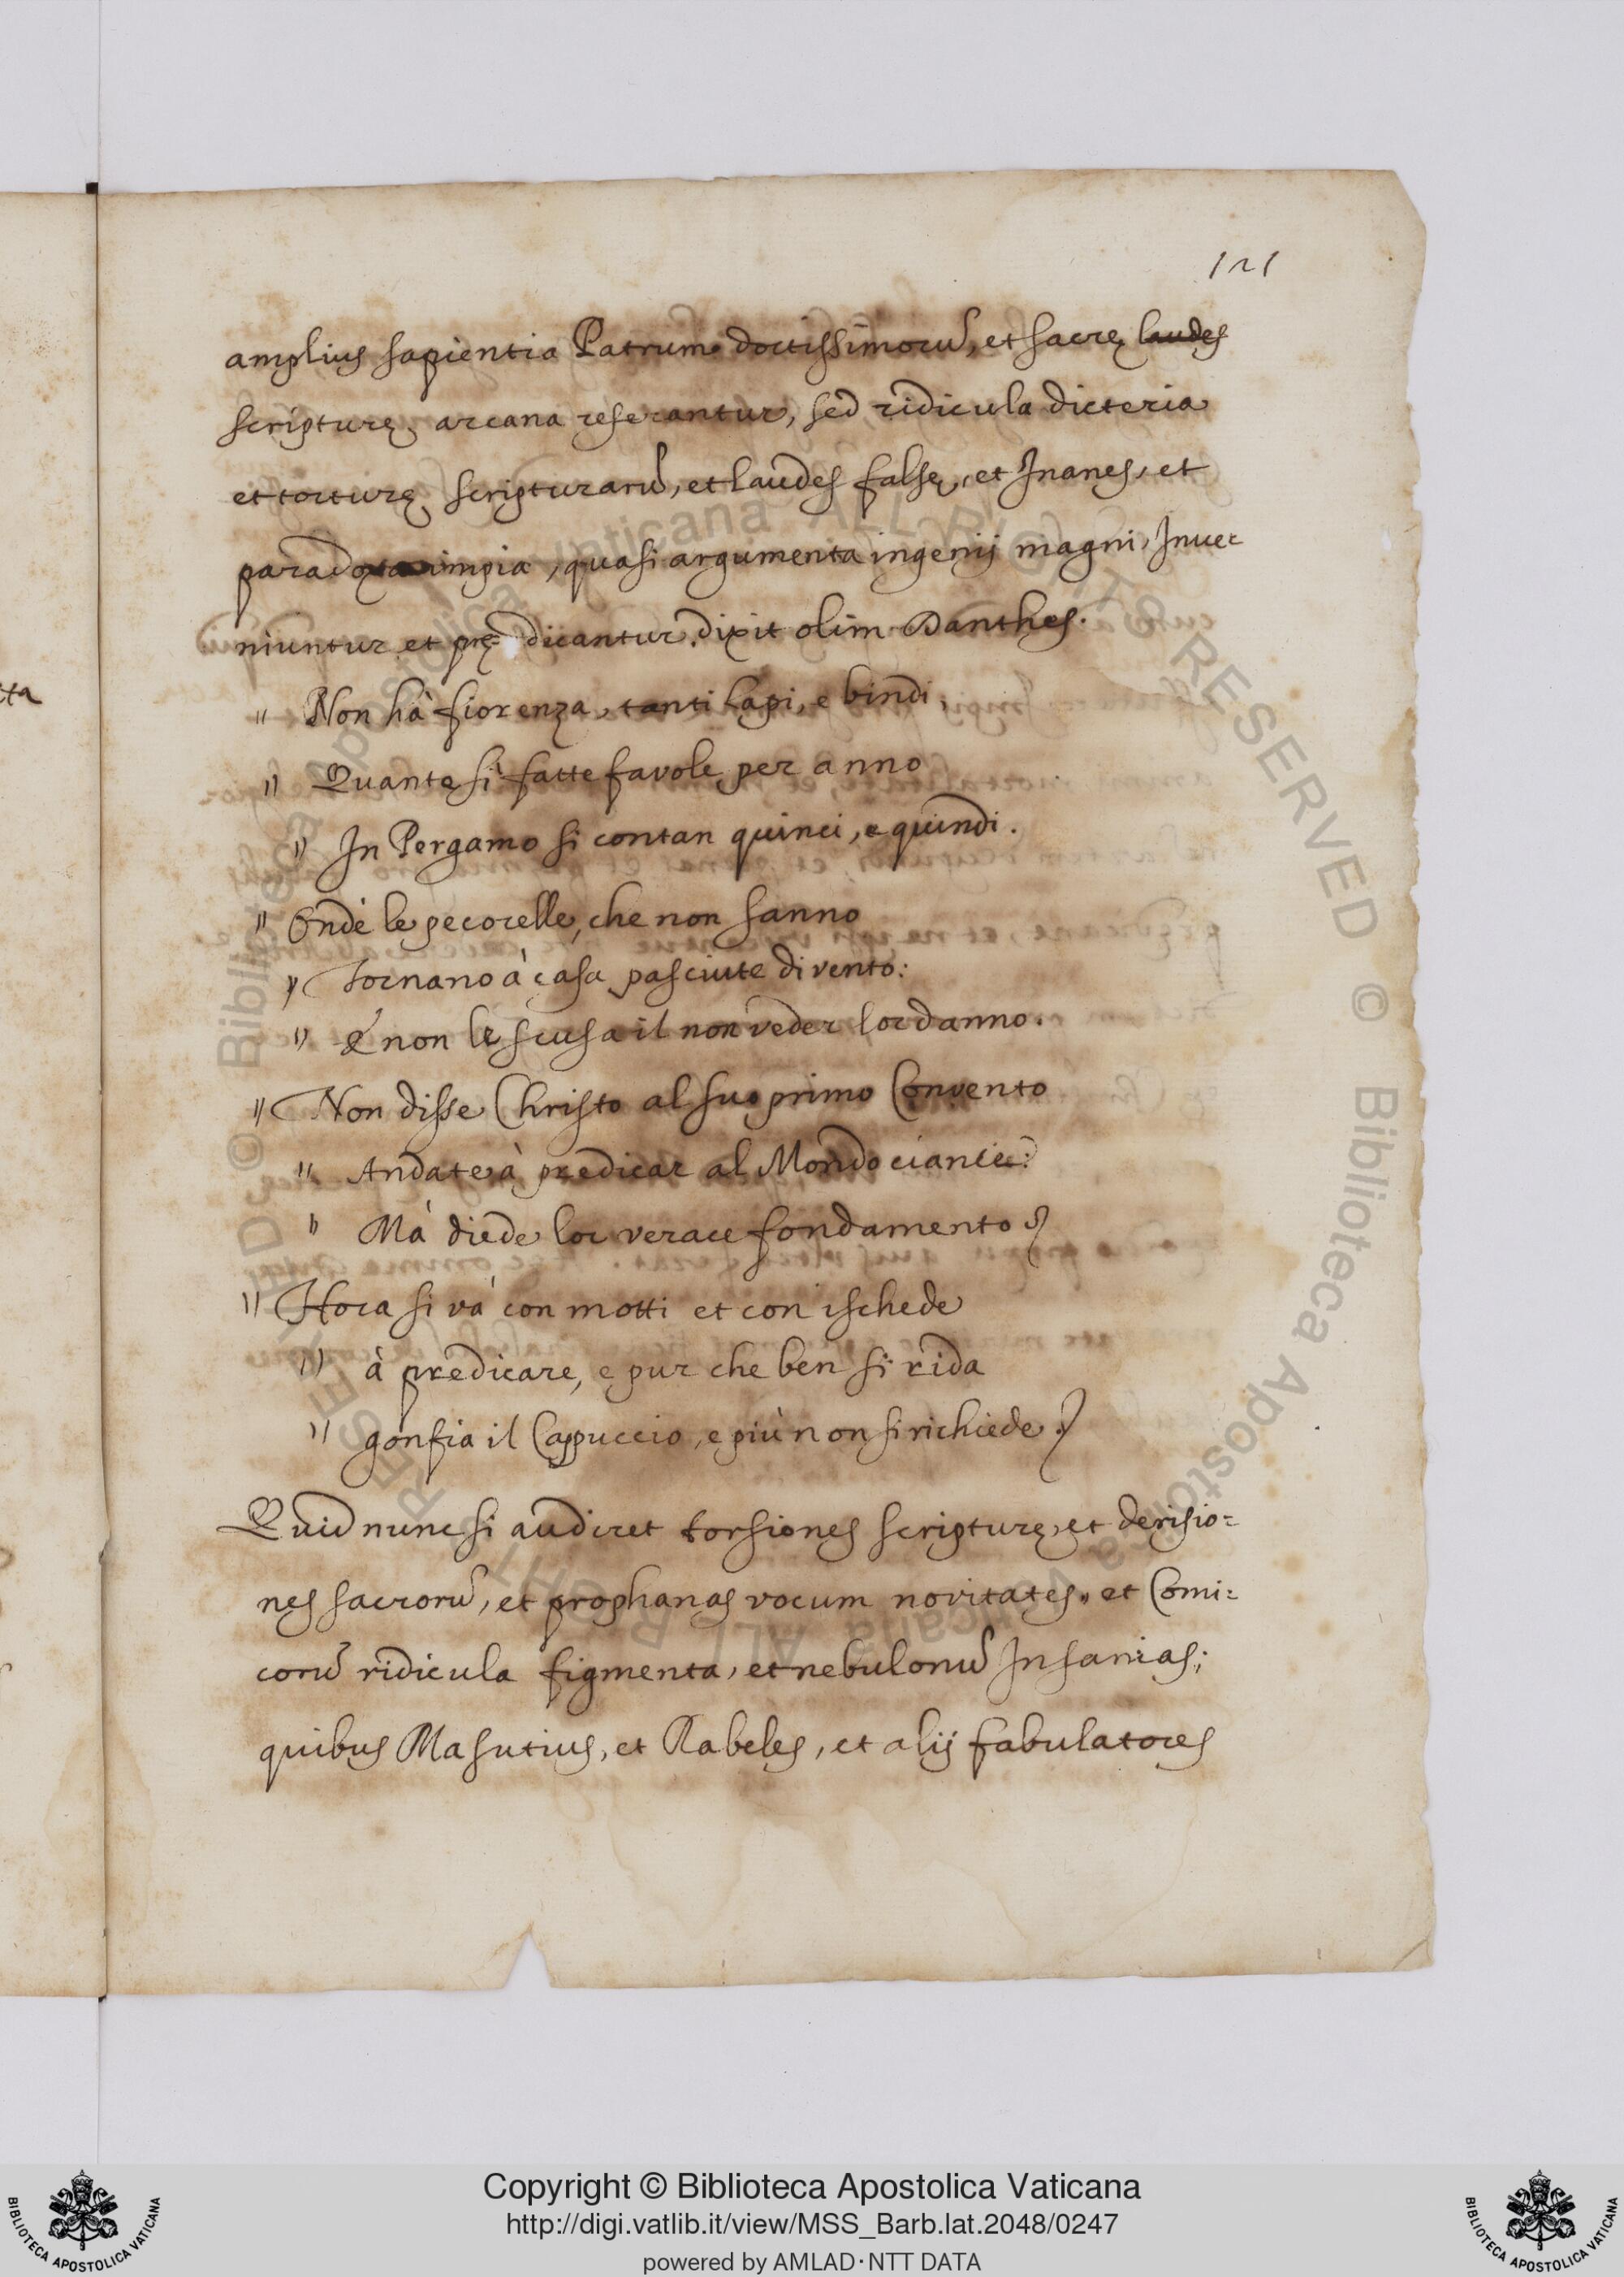 121
amplius sapientia Patrum doctissimorũ, et sacrę laudes
scripturę arcana reserantur, sed ridicula dicteria
et torturę scripturarũ, et laudes falsę, et Inanes, et
paradoxa impia, quasi argumenta ingenij magni, Inue-
niuntur et prę dicantur. dixit olim Danthes.
" Non hà fiorenza, tanti lapi, e bindi,
" Quante si fatte favole per anno
" In Pergamo si contan quinci, e quindi.
" Onde le pecorelle, che non sanno
" Tornano à casa pasciute di vento:
" E non le scusa il non veder lor danno.
" Non disse Christo al suo primo Convento
" Andate à predicar al Mondo ciancie:
" Mà diede lor verace fondamento
" Hora si và con motti et con ischede
" à predicare, e pur che ben si rida
" gonfia il Capuccio, e più non si richiede.
Quid nunc si audiret torsiones scripturę, et derisio=
nes sacrorũ, et prophanas vocum novitates, et Comi=
corũ ridicula figmenta, et nebulonũ Insanias;
quibus Masutius, et Rabeles, et alij fabulatores
tta
© Biblioteca Apostolica Vaticana ALL RIGHTS RESERVED © Biblioteca Apostolica Vaticana ALL RIGHTS RESERVED
Copyright © Biblioteca Apostolica Vaticana
http://digi.vatlib.it/view/MSS_Barb.lat.2048/0247
powered by AMLAD·NTT DATA
BIBLIOTECA APOSTOLICA VATICANA
BIBLIOTECA APOSTOLICA VATICANA